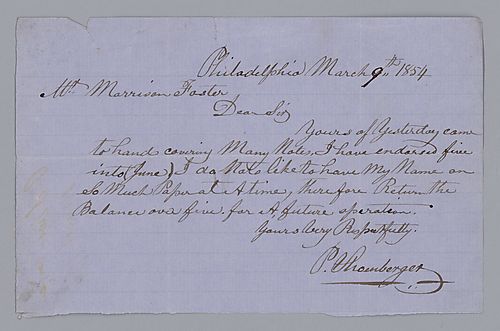 Philadelphia March 9th 1854
Mr. Morrison Foster
Dear Sir
Yours of Yesterday came
to hand covering Many Notes, I have endorsed five
into (June) I do Not like to have My Name on
So Much Paper at A time, therefore Return the
Balance over five for A future operation.
Yours Very Respectfully.
P. Shomberger